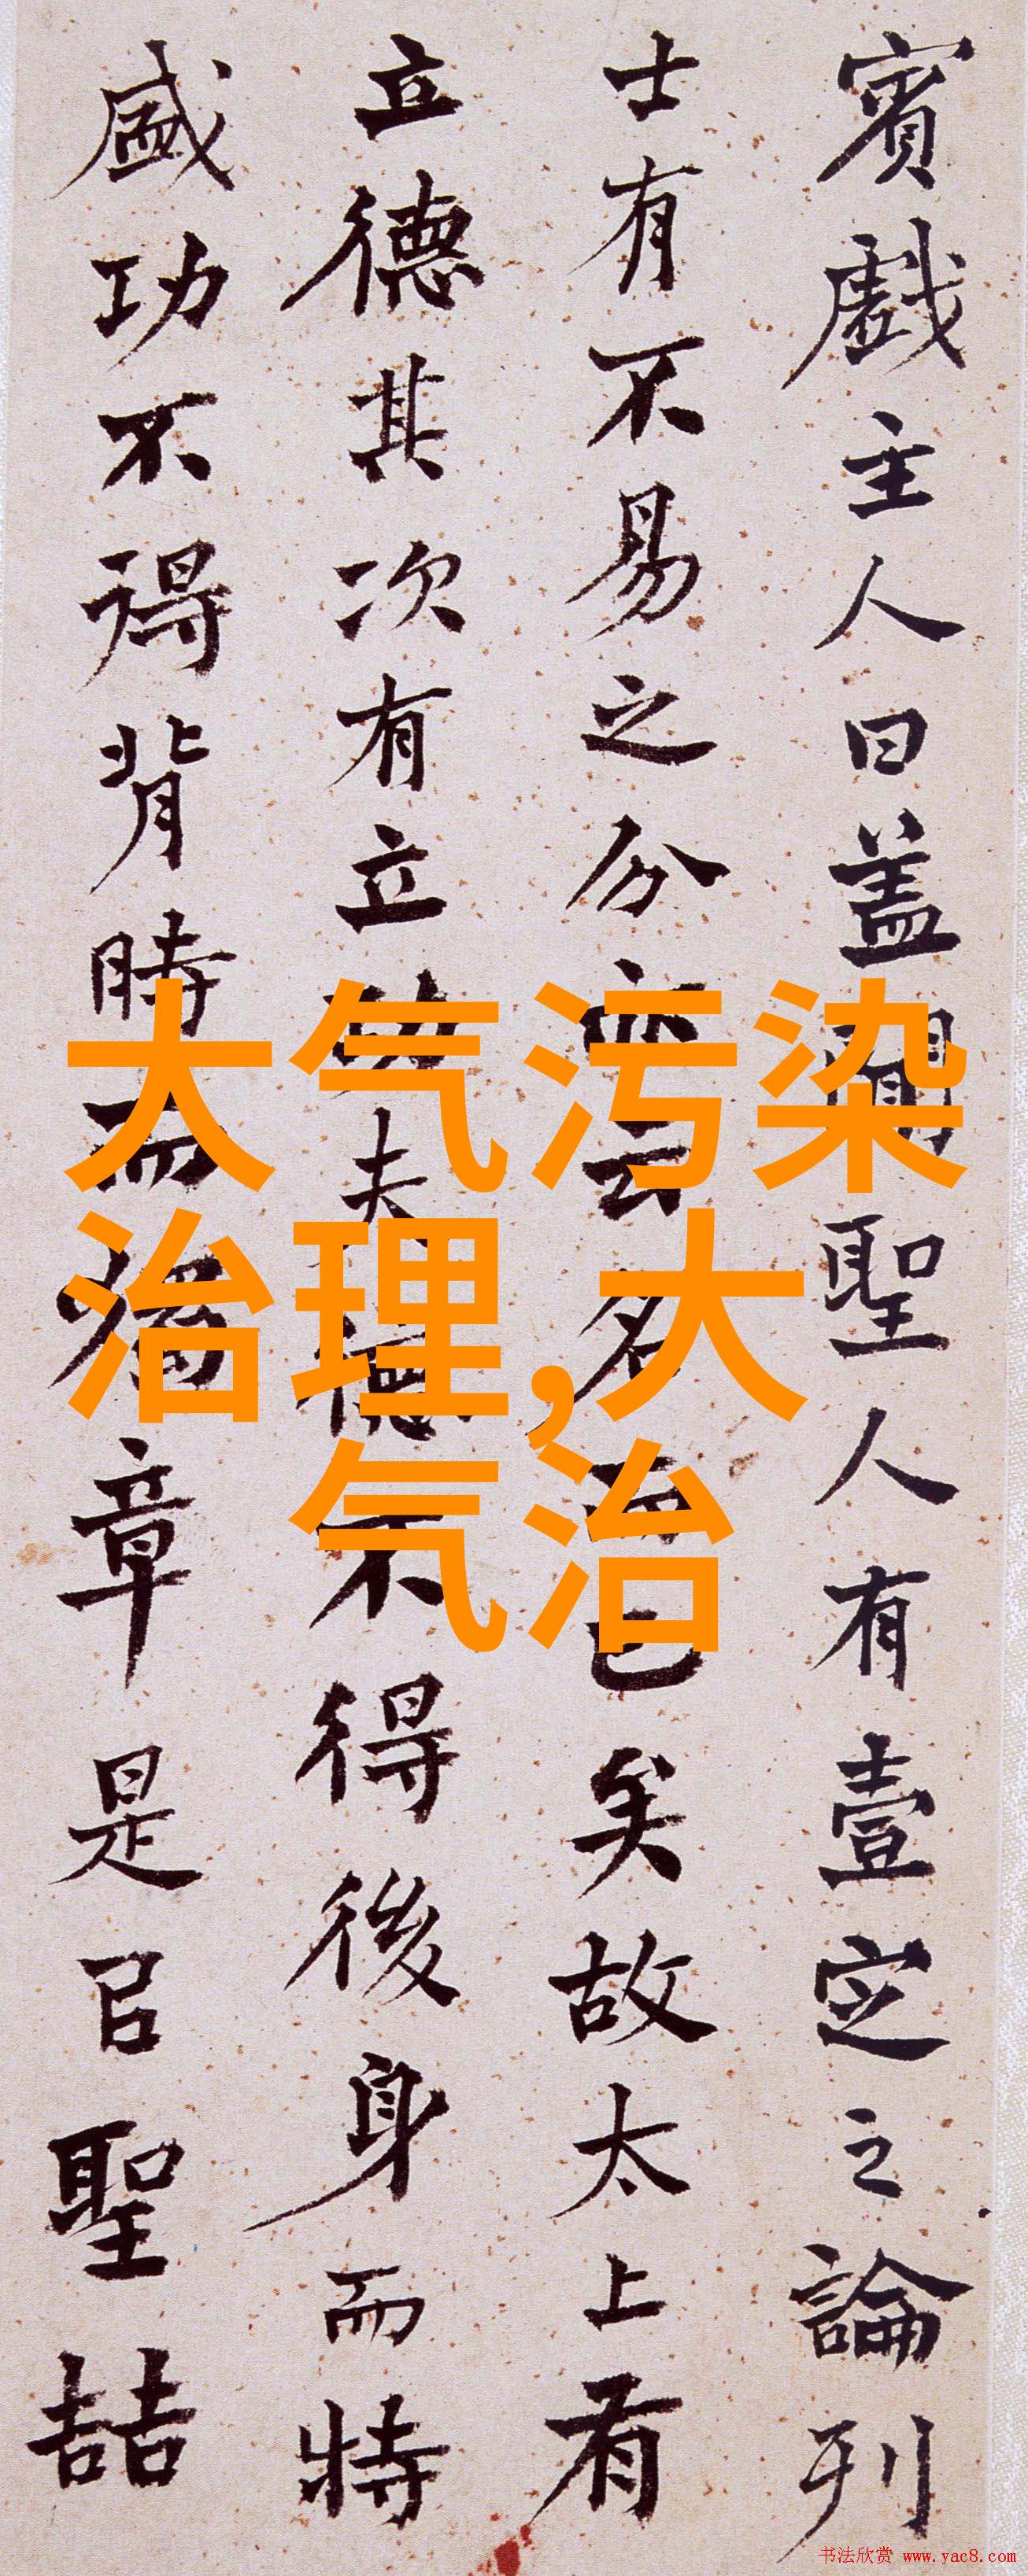 賓戲主人曰蓋聞聖人有壹定之論列
士有不易之分亦云名而已矣故太上有
立德其次有立功夫德不得後身而特
盛功不得背時而獨章是以聖喆
大气污染
治理,大
气治
书法欣赏 www.yac8.com